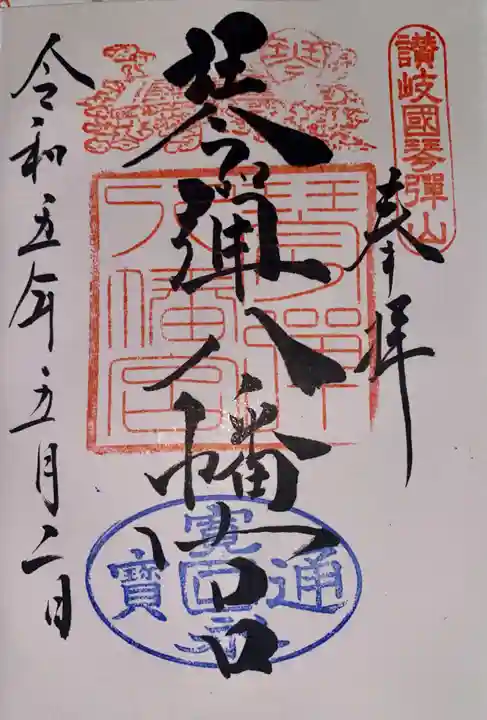 讃岐國琴彈山
奉拝
琴彈八幡宮
琴彈
八幡宮
寛永
通
寳
令和五年五月二日